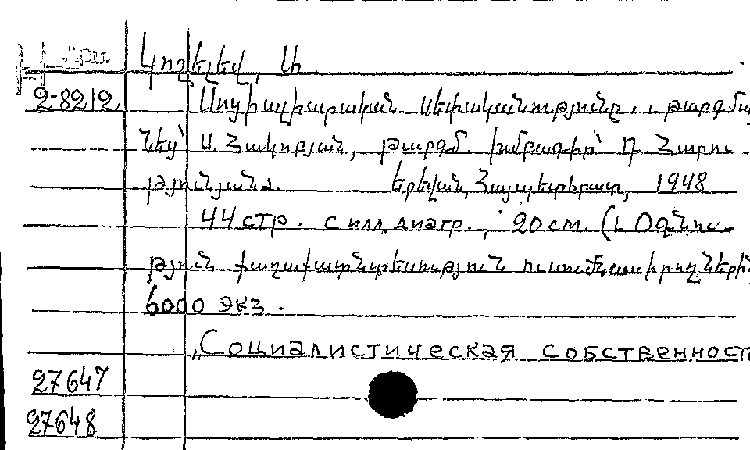 Կոշելև, Ֆ.
2-8212 Սոցիալիստական սեփականությունը. թարգմա
նեց՝ Ա. Հակոբյան, թարգմ. խմբագիր՝ Հարու
թյունյան. Երևան, Հայպետհրատ, 1948
44 стр. с илл. диагр., 20 см. (Օգնու
թյուն քաղաքատնտեսություն ուսումնասիրողներին
6000 экз.
Социалистическая собственност
27647
27648